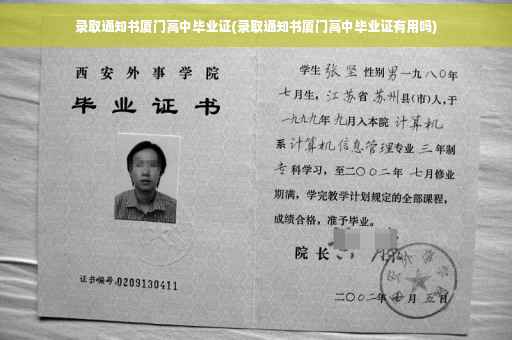 录取通知书厦门高中毕业证(录取通知书厦门高中毕业证有用吗)
西安外事学院
毕业证书
证书编号:0209130411
学生张坚性别男一九八〇年
七月生,江苏省苏州县(市)人,于
一九九九年九月入本院计算机
系计算机信息管理专业三年制
专科学习,至二〇〇二年七月修业
期满,学完教学计划规定的全部课程,
成绩合格,准予毕业。
院长
二〇〇二年七月五日